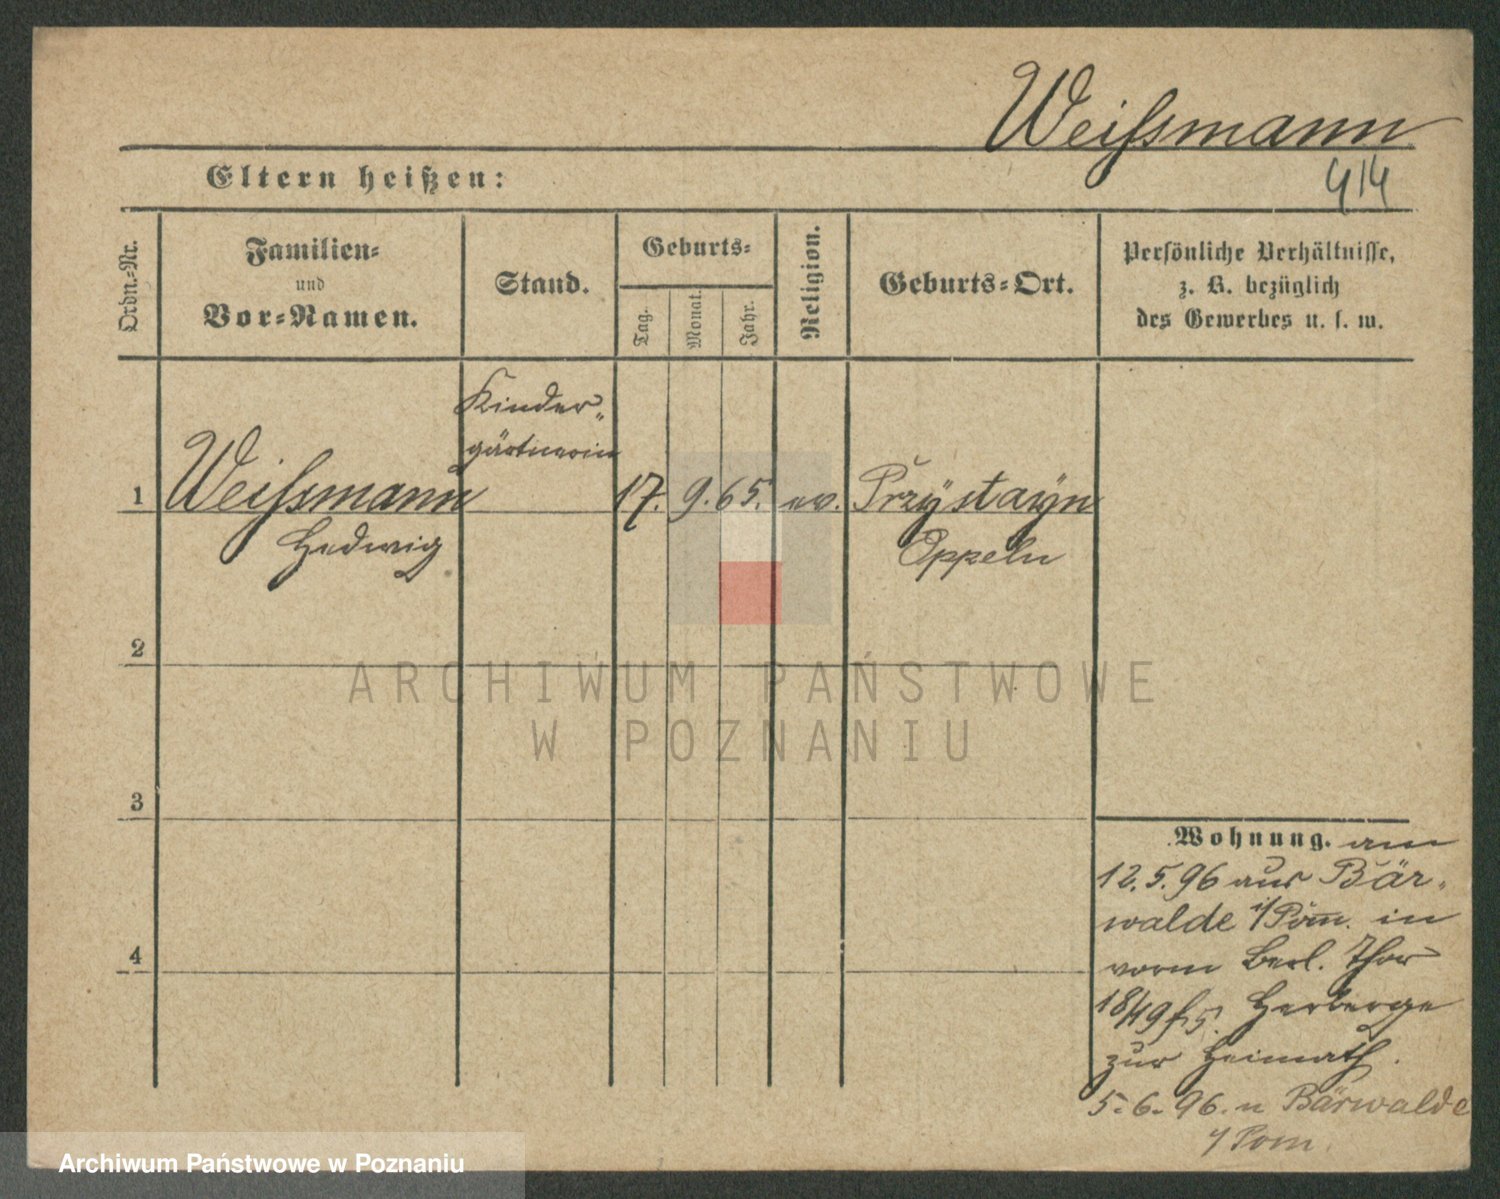 Weiſsmann
414
Eltern heißen:
Ordn.-Nr.
Familien-
und
Vor-Namen.
Stand.
Geburts-
Tag.
Monat.
Jahr.
Religion.
Geburts-Ort.
Persönliche Verhältnisse,
z. B. bezüglich
des Gewerbes u. s. w.
Kinder-
gärtnerin
1 Weiſsmann 17. 9. 65. ev. Przystayn
Hedwig Oppeln
2
3
4
Wohnung. am
12.5.96 aus Bär-
walde i/Pom. in
vorm Berl. Thor
18/19 Herberge
zur Heimath.
5.6.96. n Bärwalde
i/Pom.
ARCHIWUM PAŃSTWOWE
W POZNANIU
Archiwum Państwowe w Poznaniu